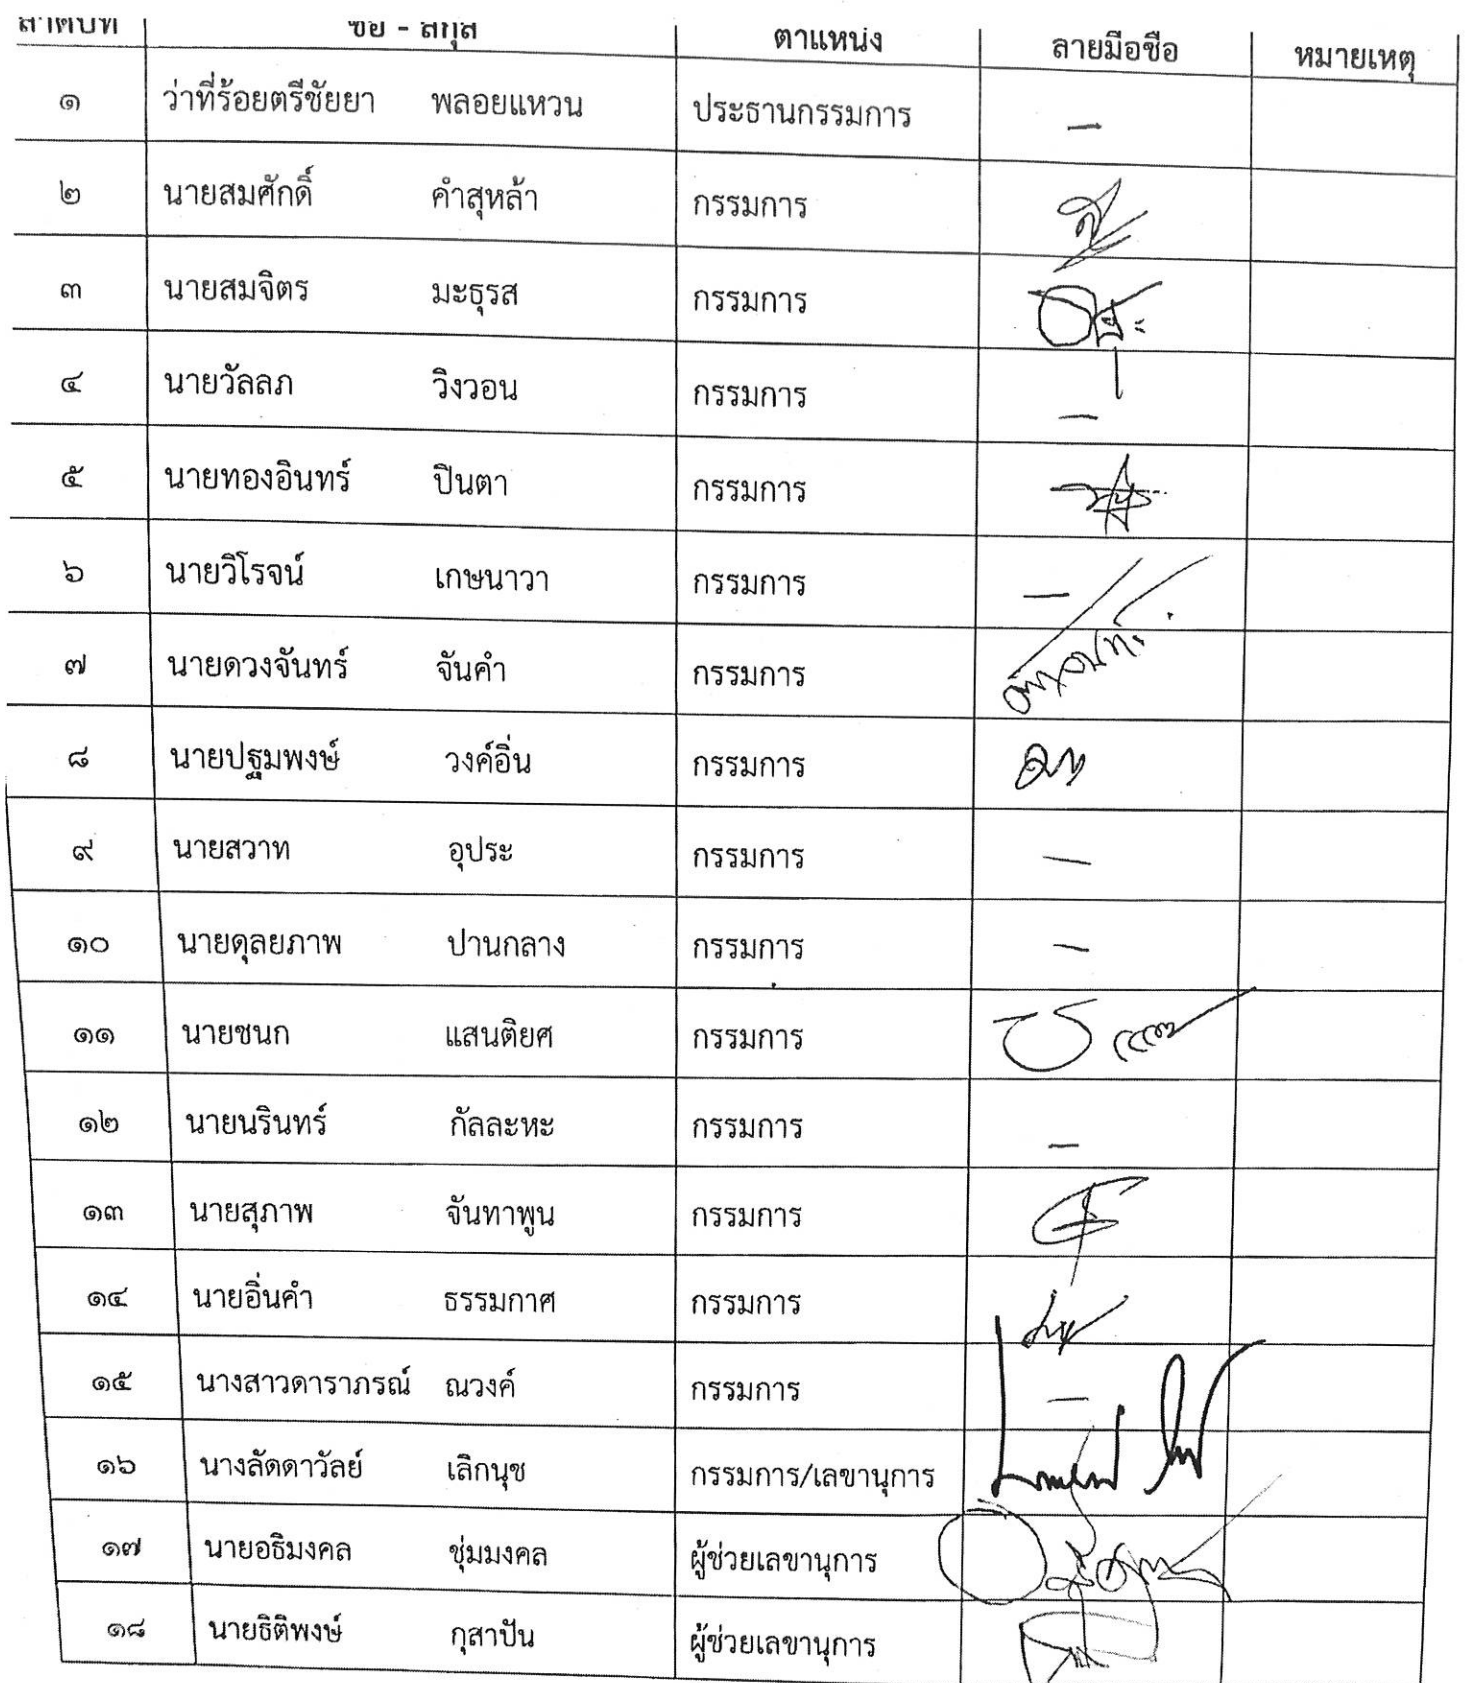 ลำดับที่ ชื่อ - สกุล ตำแหน่ง ลายมือชื่อ หมายเหตุ
๑ ว่าที่ร้อยตรีชัยยา พลอยแหวน ประธานกรรมการ –
๒ นายสมศักดิ์ คำสุหล้า กรรมการ
๓ นายสมจิตร มะธุรส กรรมการ
๔ นายวัลลภ วิงวอน กรรมการ –
๕ นายทองอินทร์ ปินตา กรรมการ
๖ นายวิโรจน์ เกษนาวา กรรมการ –
๗ นายดวงจันทร์ จันคำ กรรมการ
๘ นายปฐมพงษ์ วงค์อิ่น กรรมการ
๙ นายสวาท อุประ กรรมการ –
๑๐ นายดุลยภาพ ปานกลาง กรรมการ –
๑๑ นายชนก แสนติยศ กรรมการ
๑๒ นายนรินทร์ กัลละหะ กรรมการ –
๑๓ นายสุภาพ จันทาพูน กรรมการ
๑๔ นายอิ่นคำ ธรรมกาศ กรรมการ
๑๕ นางสาวดาราภรณ์ ณวงค์ กรรมการ –
๑๖ นางลัดดาวัลย์ เลิกนุช กรรมการ/เลขานุการ
๑๗ นายอธิมงคล ชุ่มมงคล ผู้ช่วยเลขานุการ
๑๘ นายธิติพงษ์ กุสาปัน ผู้ช่วยเลขานุการ